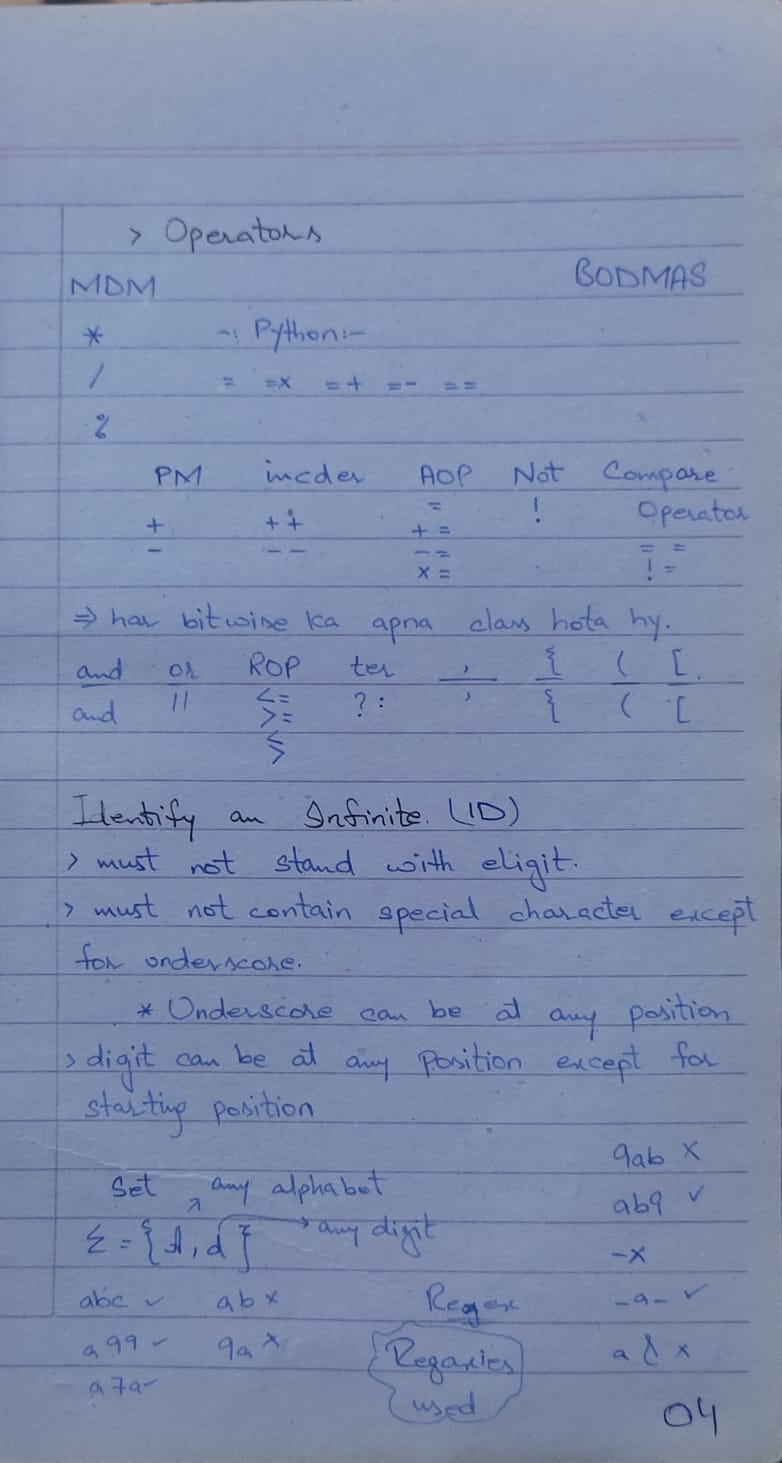 > Operators
MDM BODMAS
* -: Python:-
/ = =x =+ =- ==
%
PM incder AOP Not Compare
+ ++ = ! Operator
- -- += ==
-= !=
x=
=> har bitwise ka apna class hota hy.
and or ROP ter , { ( [
and || <= ?: , { ( [
>=
<
>
Identify an Infinite. (ID)
> must not stand with eligit.
> must not contain special character except
for onderscore.
* Underscore can be at any position
> digit can be at any position except for
starting position
9ab x
Set any alphabet
ab9 ✓
Σ = { A, d } → any digit
-x
abc ✓ ab x Regex -a- ✓
a99 ✓ 9a x Regaxies a & x
a7a- used
04